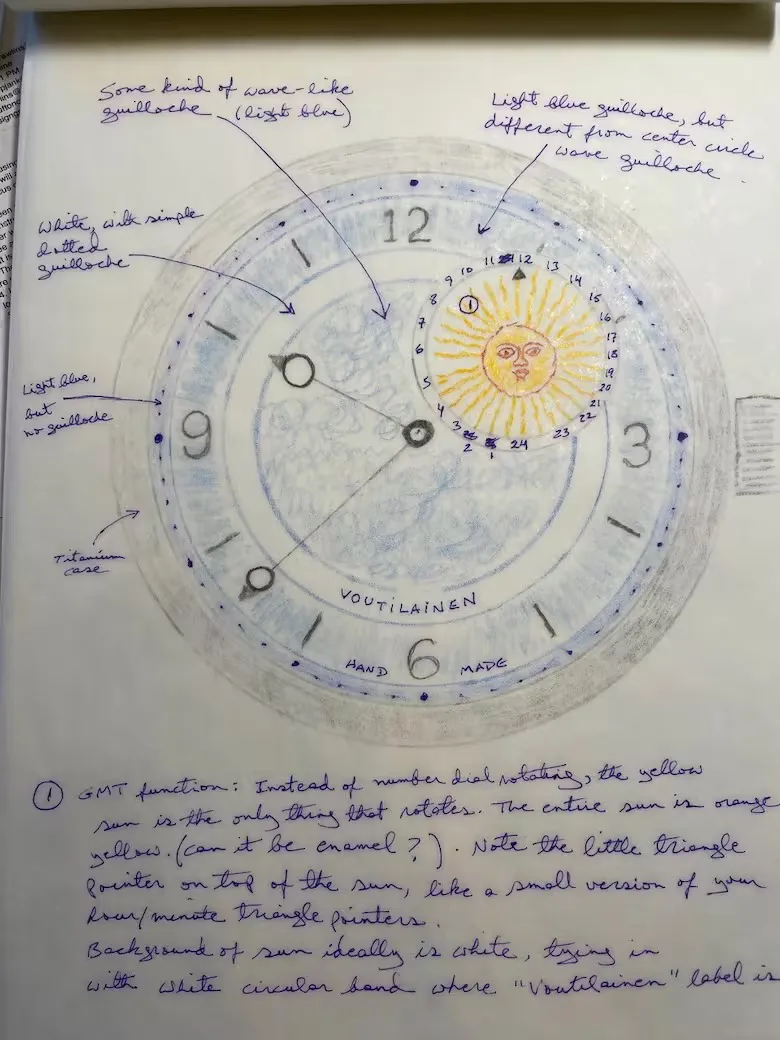 Some kind of wave-like
guilloche (light blue)
Light blue guilloche, but
different from center circle
wave guilloche.
White, with simple
dotted
guilloche
Light blue,
but
no guilloche
Titanium
case
12
3
6
9
11 12 13
10 14
9 15
8 16
7 17
6 18
5 19
4 20
3 21
2 22
1 24 23
1
VOUTILAINEN
HAND MADE
1 GMT function: Instead of number dial rotating, the yellow
sun is the only thing that rotates. The entire sun is orange
yellow. (Can it be enamel?). Note the little triangle
pointer on top of the sun, like a small version of your
hour/minute triangle pointers.
Background of sun ideally is white, tying in
with white circular band where "Voutilainen" label is